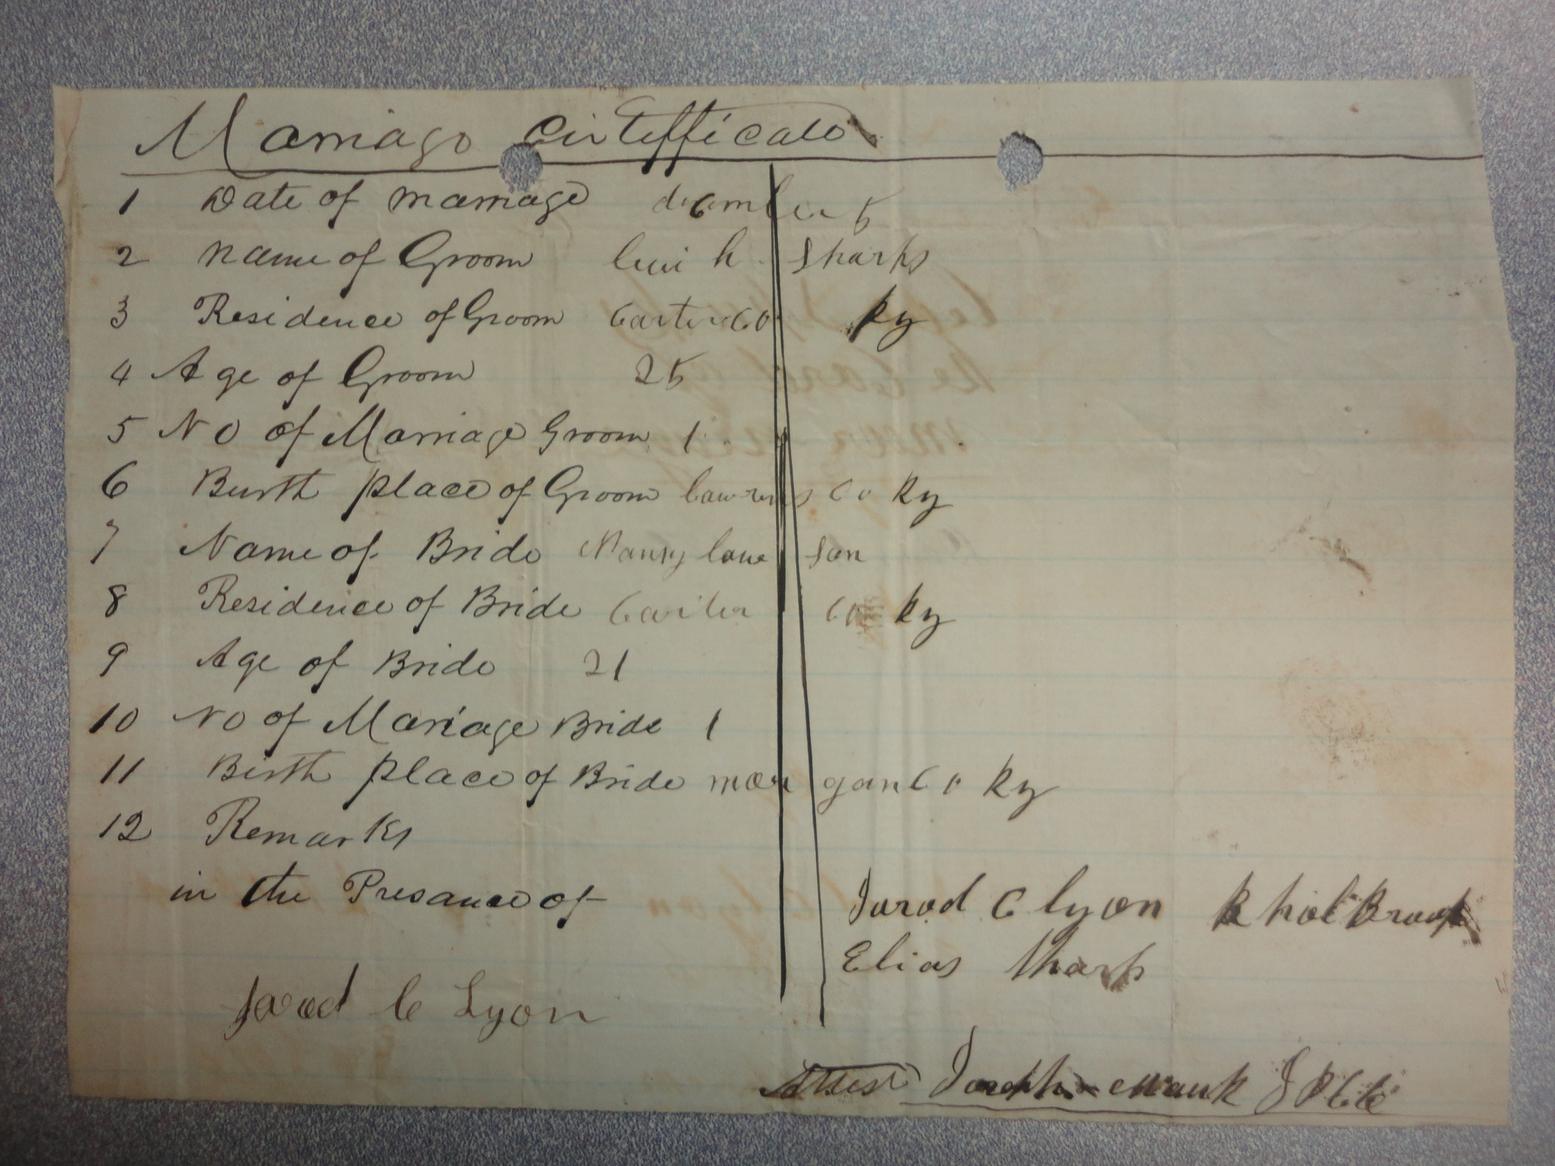 Marriage Cirtifficate
1 Date of marriage december 5
2 name of Groom levi h Sharks
3 Residence of Groom Carter Co Ky
4 Age of Groom 25
5 No of Marriage Groom 1
6 Burth place of Groom Co Ky
7 Name of Bride Nancy law son
8 Residence of Bride Carter Co Ky
9 Age of Bride 21
10 No of Mariage Bride 1
11 Birth place of Bride mor gan Co Ky
12 Remarks
in the Presance of Jarod C lyon R holbrook
Elias
Jarod C Lyon
Attest Joseph